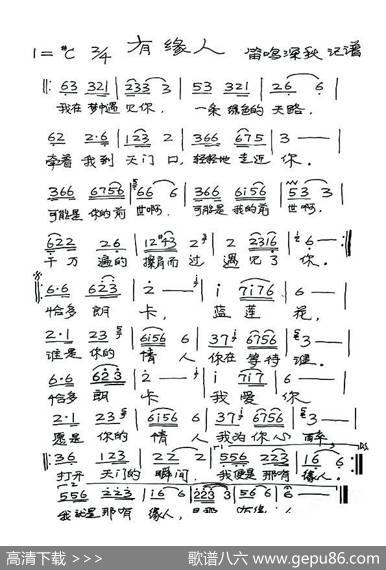 1=#C 2/4 有缘人 笛鸣深秋 记谱
63 321 | 2333 3 | 53 321 | 26 6 |
我在梦中遇见你, 一条绿色的天路,
62 2·6 | 123 2 | 366 675 | 3 — |
牵着我到天门口,轻轻地走近你。
366 6756 | 66 6 | 366 6156 | 53 3 |
可能是你的前世啊, 可能是我的前世啊,
622 26 | 2 | 2 2316 | 6 — :||
千万遍的擦肩而过遇见了你。
6·6 623 | 2 — | 1 7176 | 6 — |
恰多朗卡, 蓝莲花,
2·1 23 | 6156 6 | 37 6756 | 3 — |
谁是你的情人你在等待谁。
6·6 623 | 2 — | 1 717 | 6 — |
恰多朗卡我爱你
2·1 23 | 6156 6 | 37 6756 | 3 — |
愿是你的情人我为你心醉
||: 36 123 | 22 2 | 556 223 | 16 6 :||
打开天门的瞬间,我便是那有缘人。
556 223 | 16 6 | 223 3 | 56 6 | 6 — :||
我就是那有缘人,
高清下载 >>>
歌谱八六 www.gepu86.com